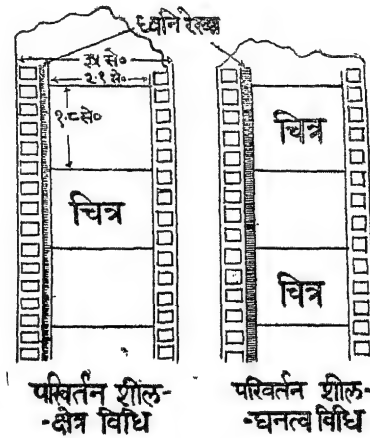 ध्वनि रेखा
३५ से०
२.१ से०
१.८ से०
चित्र
चित्र
चित्र
परिवर्तन शील-
-क्षेत्र विधि
परिवर्तन शील-
-घनत्व विधि